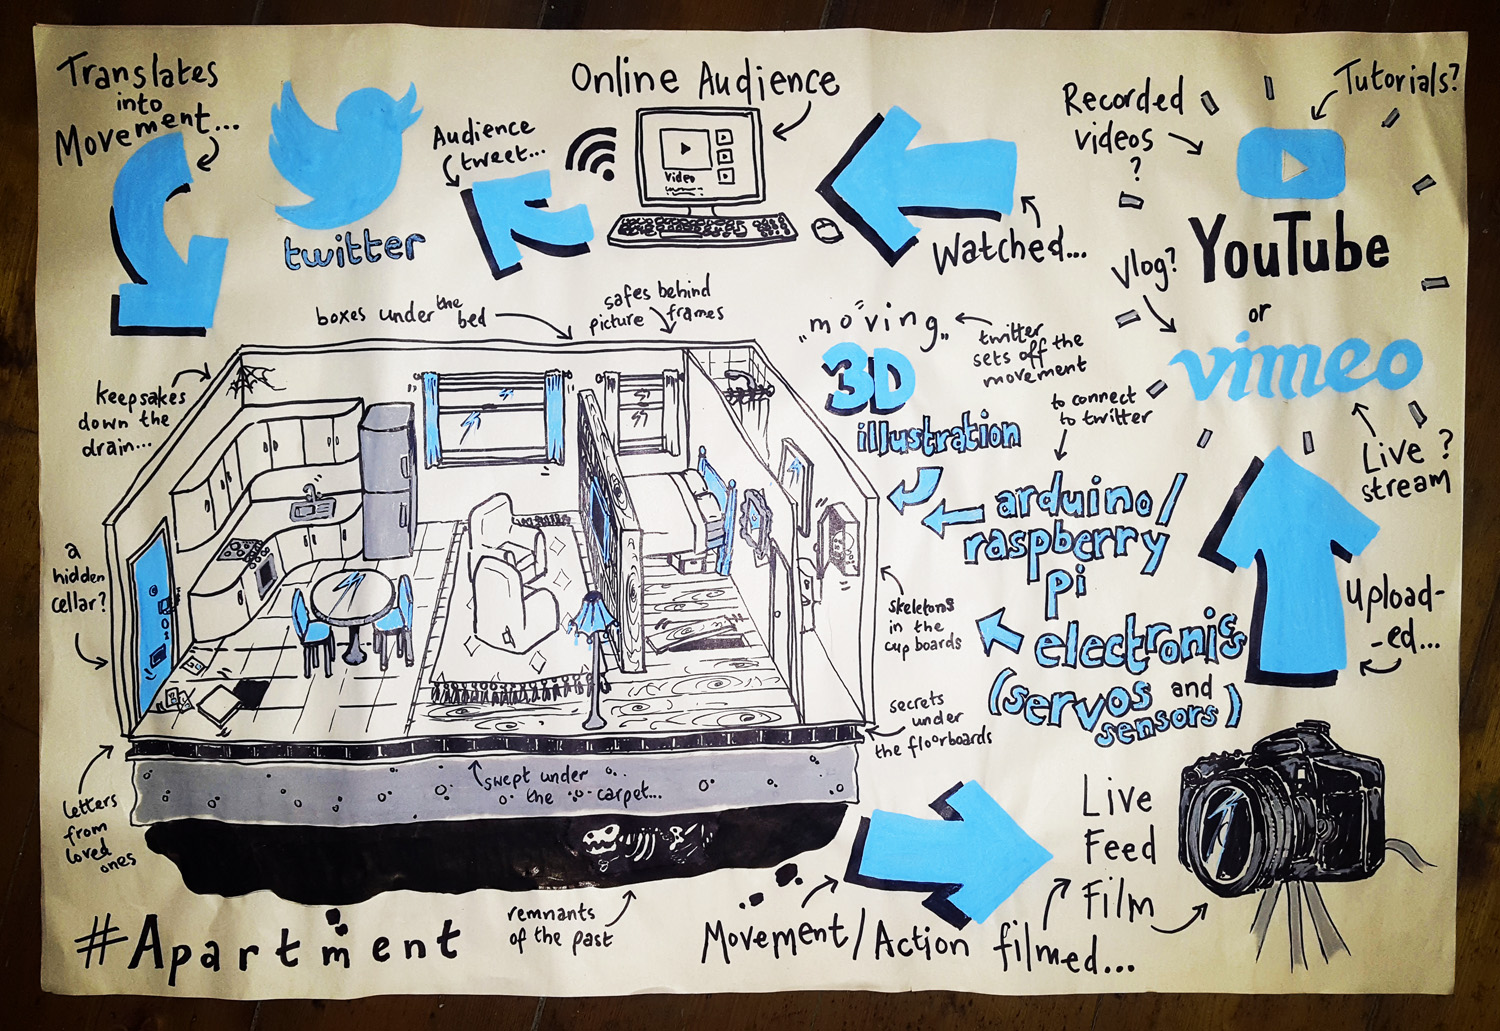 Translates
into
Movement...
twitter
Audience
tweet...
Online Audience
Video
Watched...
Recorded
videos
?
Tutorials?
YouTube
Vlog?
or
vimeo
Live ?
stream
Upload-
-ed...
boxes under the bed
safes behind
picture frames
"moving"
3D
illustration
twitter
sets off the
movement
to connect
to twitter
arduino/
raspberry
pi
electronics
(servos and
sensors)
keepsakes
down the
drain...
a
hidden
cellar?
letters
from
loved
ones
skeletons
in the
cupboards
secrets
under
the floorboards
swept under
the carpet...
remnants
of the past
#Apartment
Movement/Action filmed...
Live
Feed
Film